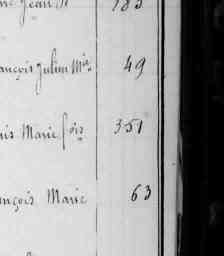 Jean 183
ançois Julien Mie 49
uis Marie fois 351
ançois Marie 63